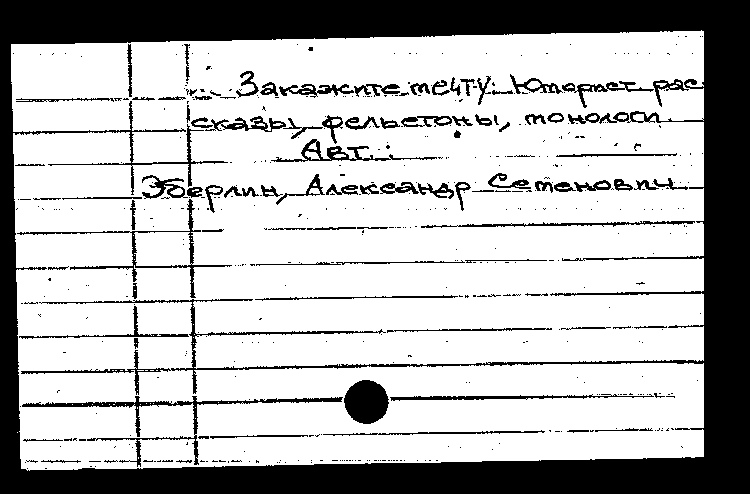 Закажите мечту: Юморист. рас-
сказы, фельетоны, монологи.
Авт.:
Эберлин, Александр Семенович